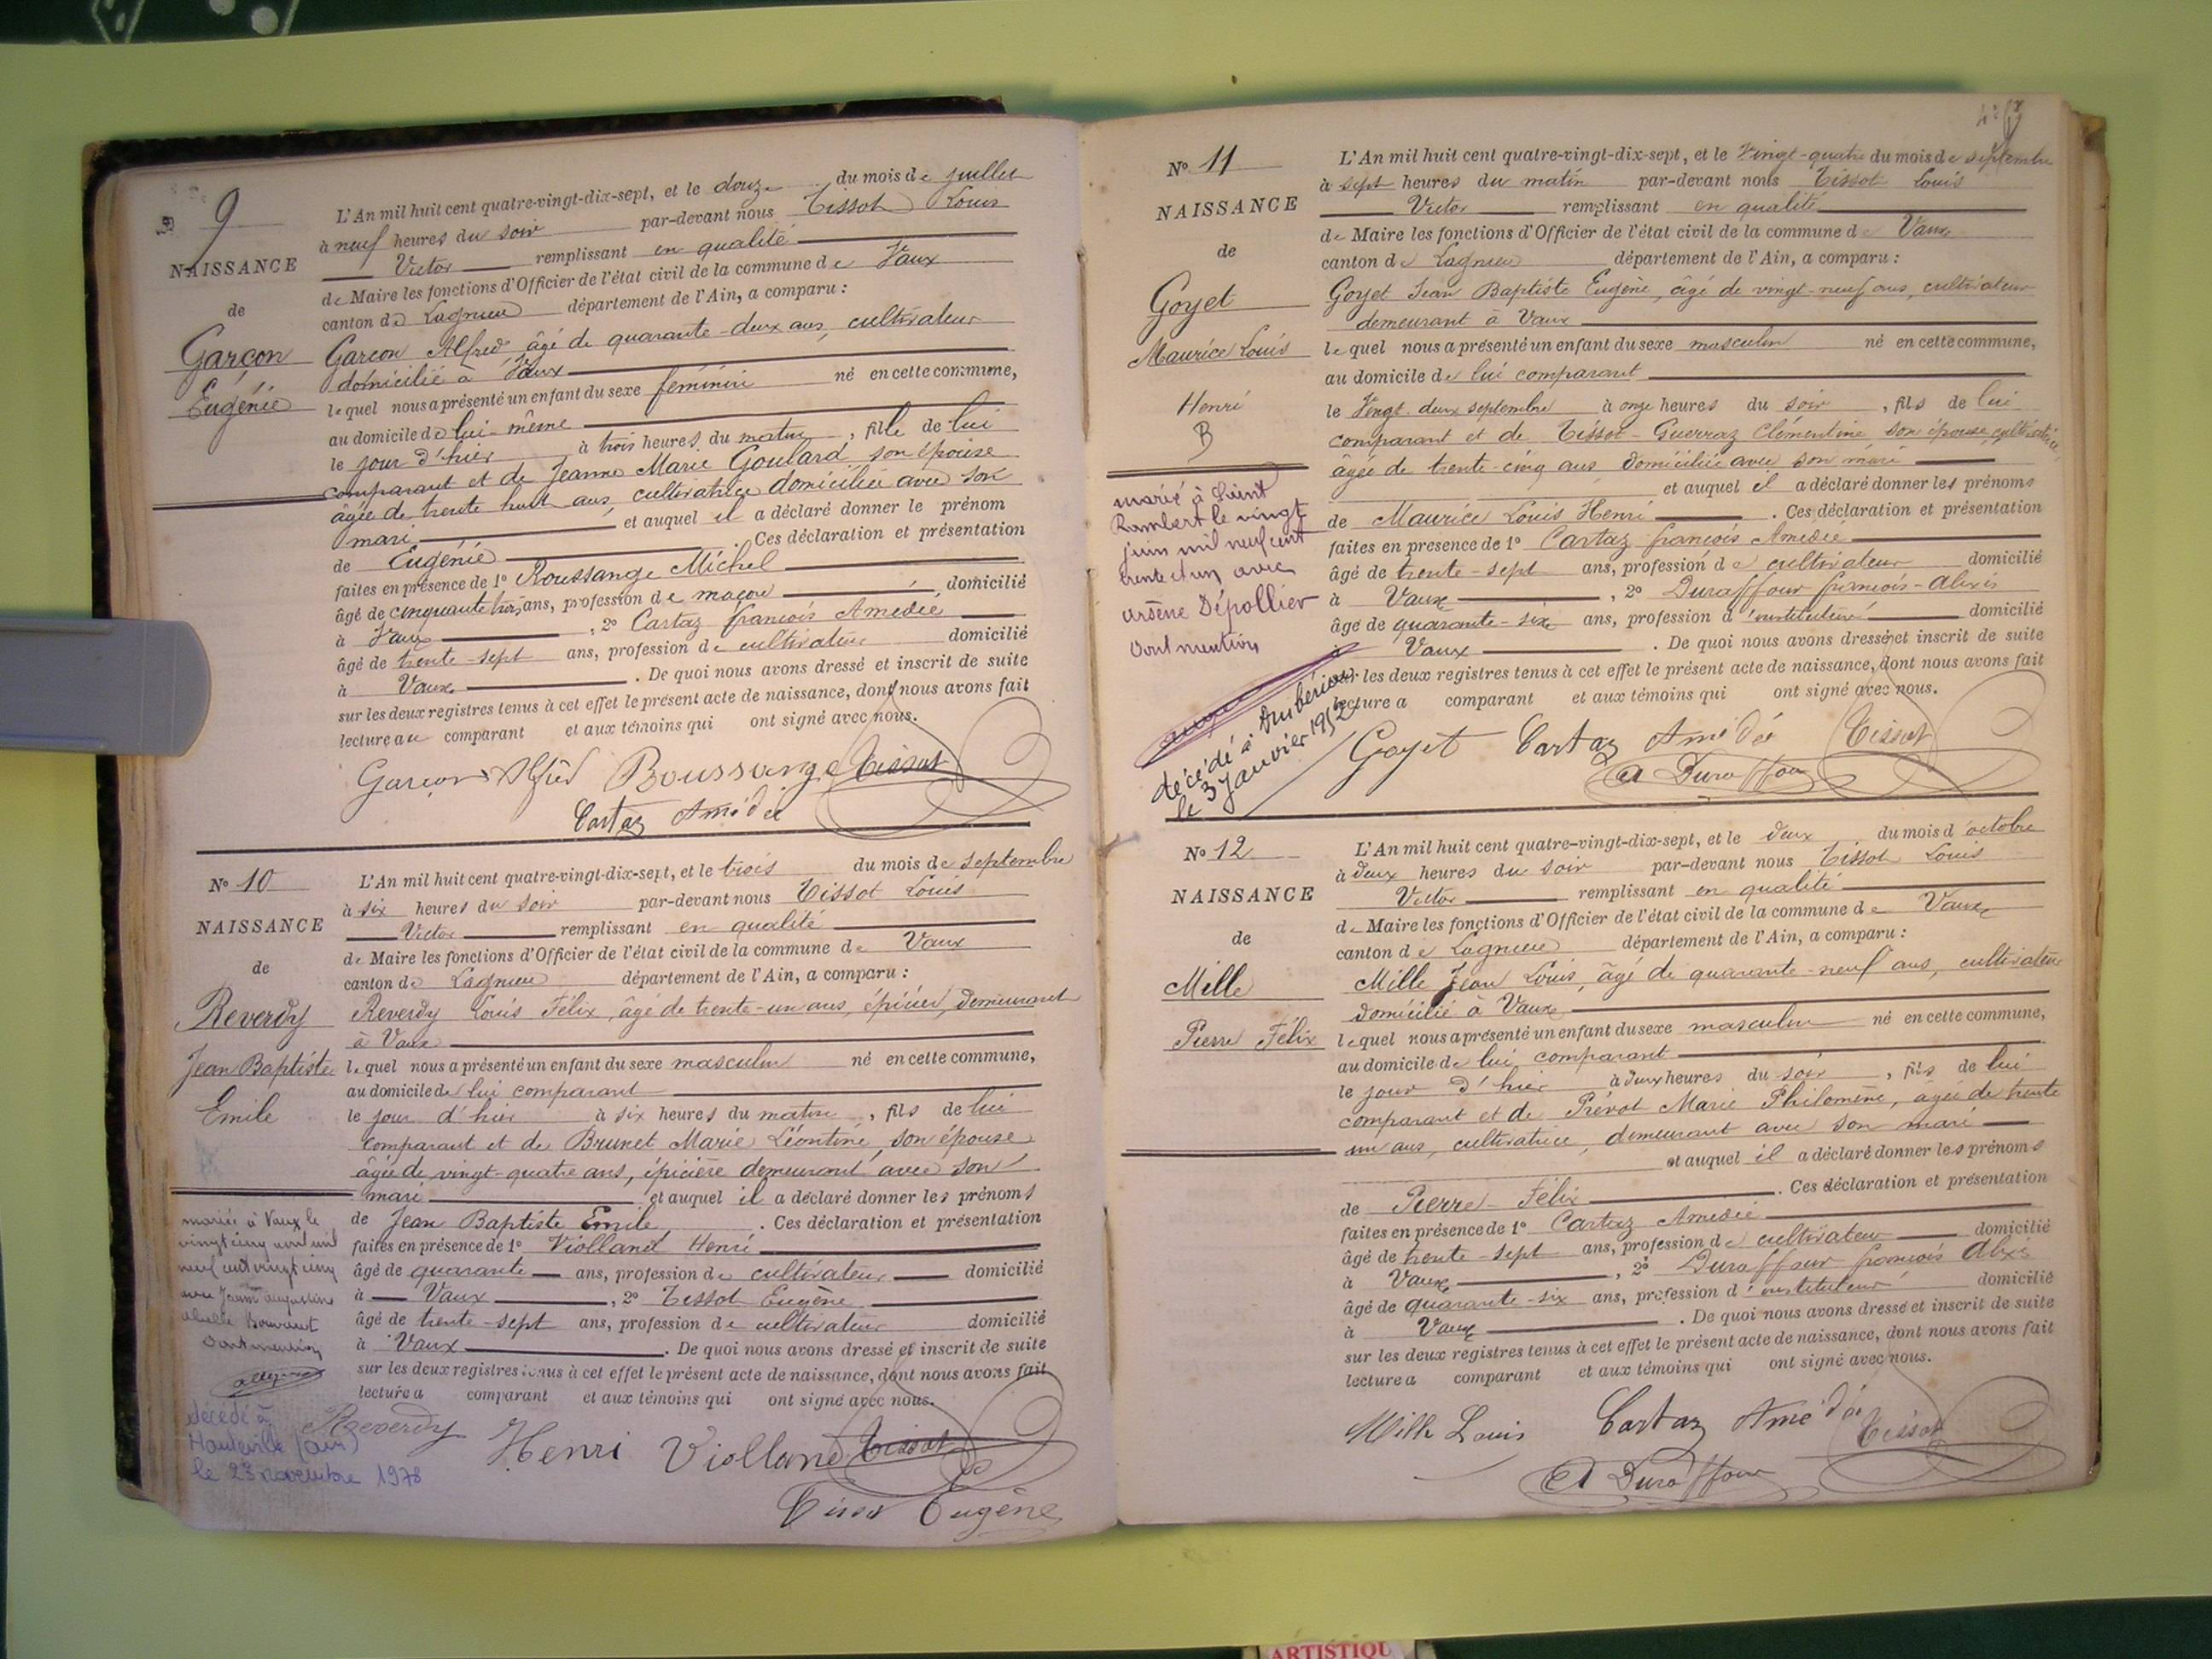 9
NAISSANCE
de
Garçon
Eugénie
L'An mil huit cent quatre-vingt-dix-sept, et le douze du mois de juillet
à neuf heures du soir par-devant nous Tissot Louis
Victor remplissant en qualité
de Maire les fonctions d'Officier de l'état civil de la commune de Vaux
canton de Lagnieu département de l'Ain, a comparu :
Garçon Alfred âgé de quarante-deux ans, cultivateur
domicilié à Vaux
lequel nous a présenté un enfant du sexe féminin né en cette commune,
au domicile de lui-même
le jour d'hier à trois heures du matin, fille de lui
comparant et de Jeanne Marie Goulard son épouse
âgée de trente huit ans, cultivatrice domiciliée avec son
mari et auquel il a déclaré donner le prénom
de Eugénie . Ces déclaration et présentation
faites en présence de 1° Roussange Michel
âgé de cinquante trois ans, profession de maçon domicilié
à Vaux , 2° Cartaz françois Amédée
âgé de trente-sept ans, profession de cultivateur domicilié
à Vaux . De quoi nous avons dressé et inscrit de suite
sur les deux registres tenus à cet effet le présent acte de naissance, dont nous avons fait
lecture au comparant et aux témoins qui ont signé avec nous.
Garçon Alfred Boussange Tissot
Cartaz Amédée
N° 10
NAISSANCE
de
Reverdy
Jean Baptiste
Emile
L'An mil huit cent quatre-vingt-dix-sept, et le trois du mois de septembre
à six heures du soir par-devant nous Tissot Louis
Victor remplissant en qualité
de Maire les fonctions d'Officier de l'état civil de la commune de Vaux
canton de Lagnieu département de l'Ain, a comparu :
Reverdy Louis Félix, âgé de trente-un ans, épicier, demeurant
à Vaux
lequel nous a présenté un enfant du sexe masculin né en cette commune,
au domicile de lui comparant
le jour d'hier à six heures du matin, fils de lui
comparant et de Brunet Marie Léontine, son épouse
âgée de vingt-quatre ans, épicière demeurant avec son
mari et auquel il a déclaré donner les prénoms
de Jean Baptiste Emile . Ces déclaration et présentation
faites en présence de 1° Violland Henri
âgé de quarante ans, profession de cultivateur domicilié
à Vaux , 2° Tissot Eugène
âgé de trente-sept ans, profession de cultivateur domicilié
à Vaux . De quoi nous avons dressé et inscrit de suite
sur les deux registres tenus à cet effet le présent acte de naissance, dont nous avons fait
lecture a comparant et aux témoins qui ont signé avec nous.
marié à Vaux le
vingt cinq avril mil
neuf cent vingt cinq
avec Jeanne Augustine
Dont mention
décédé à
Hauteville (Ain)
le 23 novembre 1978
Reverdy Henri Violland Tissot
Tissot Eugène
N° 11
NAISSANCE
de
Goyet
Maurice Louis
Henri
B
L'An mil huit cent quatre-vingt-dix-sept, et le Vingt-quatre du mois de septembre
à sept heures du matin par-devant nous Tissot Louis
Victor remplissant en qualité
de Maire les fonctions d'Officier de l'état civil de la commune de Vaux
canton de Lagnieu département de l'Ain, a comparu :
Goyet Jean Baptiste Eugène, âgé de vingt-neuf ans, cultivateur
demeurant à Vaux
lequel nous a présenté un enfant du sexe masculin né en cette commune,
au domicile de lui comparant
le Vingt-deux septembre à onze heures du soir, fils de lui
comparant et de Tissot-Guerraz Clémentine son épouse, cultivatrice
âgée de trente-cinq ans, domiciliée avec son mari
et auquel il a déclaré donner les prénoms
de Maurice Louis Henri . Ces déclaration et présentation
faites en presence de 1° Cartaz françois Amédée
âgé de trente-sept ans, profession de cultivateur domicilié
à Vaux , 2° Duraffour françois-Alexis
âgé de quarante-six ans, profession d'instituteur domicilié
à Vaux . De quoi nous avons dressé et inscrit de suite
sur les deux registres tenus à cet effet le présent acte de naissance, dont nous avons fait
lecture a comparant et aux témoins qui ont signé avec nous.
marié à Saint
Rambert le vingt
juin mil neuf cent
trente et un avec
Arsène Dépollier
Dont mention
décédé à Ambérieu
le 3 Janvier 1952
Goyet Cartaz Amédée Tissot
A Duraffour
N° 12
NAISSANCE
de
Mille
Pierre Félix
L'An mil huit cent quatre-vingt-dix-sept, et le deux du mois d'octobre
à deux heures du soir par-devant nous Tissot Louis
Victor remplissant en qualité
de Maire les fonctions d'Officier de l'état civil de la commune de Vaux
canton de Lagnieu département de l'Ain, a comparu :
Mille Jean Louis, âgé de quarante-neuf ans, cultivateur
domicilié à Vaux
lequel nous a présenté un enfant du sexe masculin né en cette commune,
au domicile de lui comparant
le jour d'hier à deux heures du soir, fils de lui
comparant et de Prévot Marie Philomène, âgée de trente
un ans, cultivatrice, demeurant avec son mari
et auquel il a déclaré donner les prénoms
de Pierre-Félix . Ces déclaration et présentation
faites en présence de 1° Cartaz Amédée
âgé de trente-sept ans, profession de cultivateur domicilié
à Vaux , 2° Duraffour françois Alexis
âgé de quarante-six ans, profession d'instituteur domicilié
à Vaux . De quoi nous avons dressé et inscrit de suite
sur les deux registres tenus à cet effet le présent acte de naissance, dont nous avons fait
lecture a comparant et aux témoins qui ont signé avec nous.
Mille Louis Cartaz Amédée Tissot
A Duraffour
ARTISTIQU